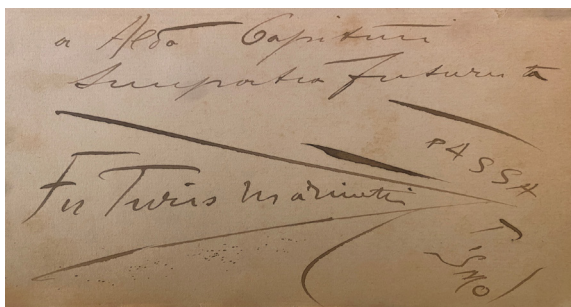 a Aldo Capitini
Simpatia futurista
FuTuris Marinetti
PASSA
TISMO